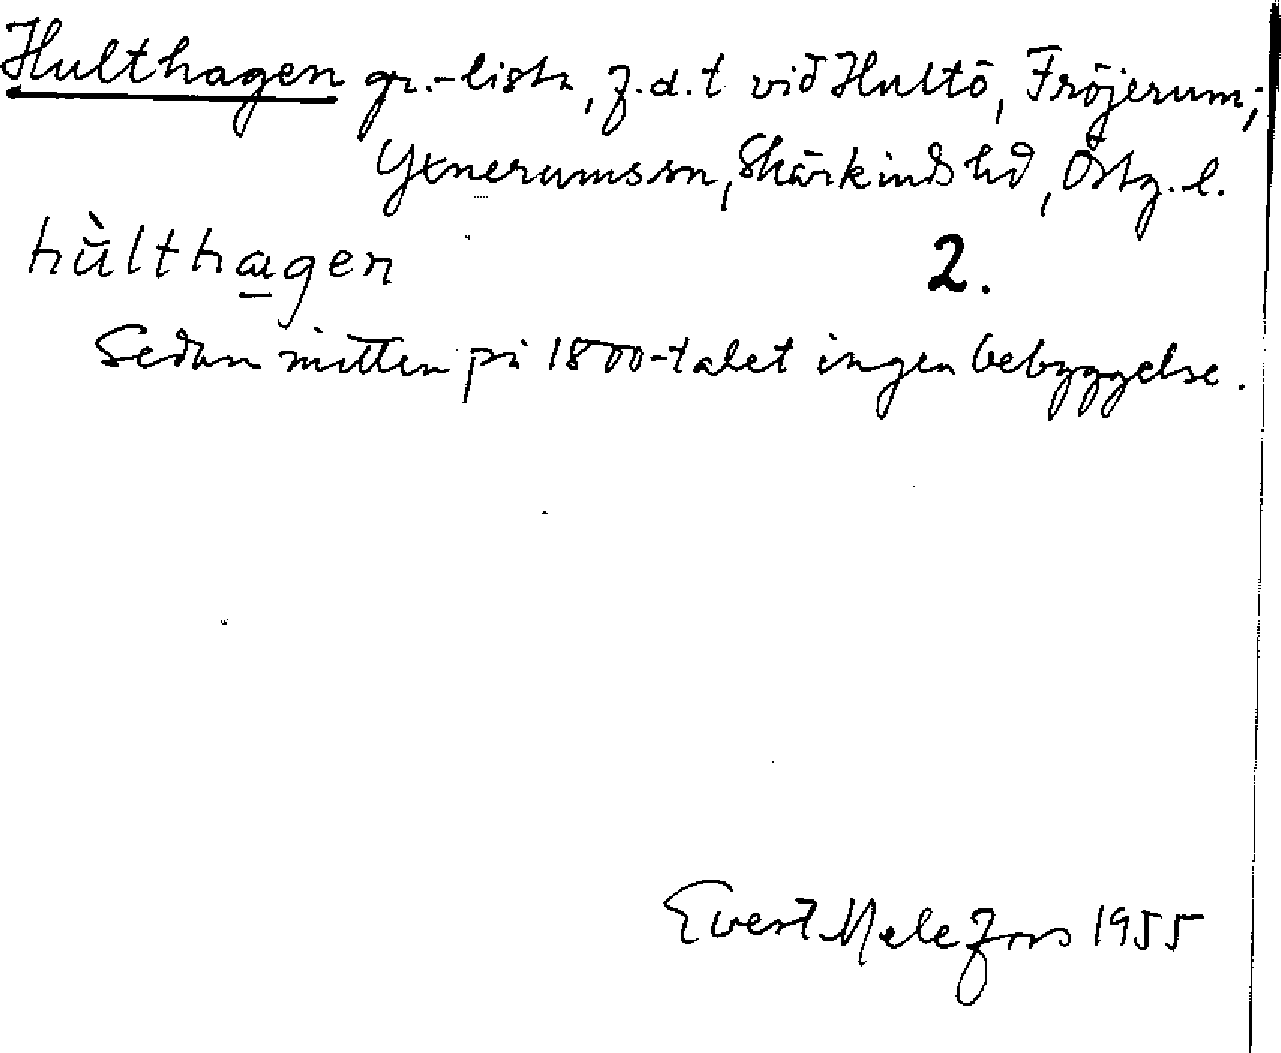 Hulthagen gr.-lista, f.d.t vid Hultö, Fröjerum,
Yxnerumssn, Skärkinds hd, Östg. l.
hùlthagen 2.
Sedan mitten på 1800-talet ingen bebyggelse.
Evert Melefors 1955